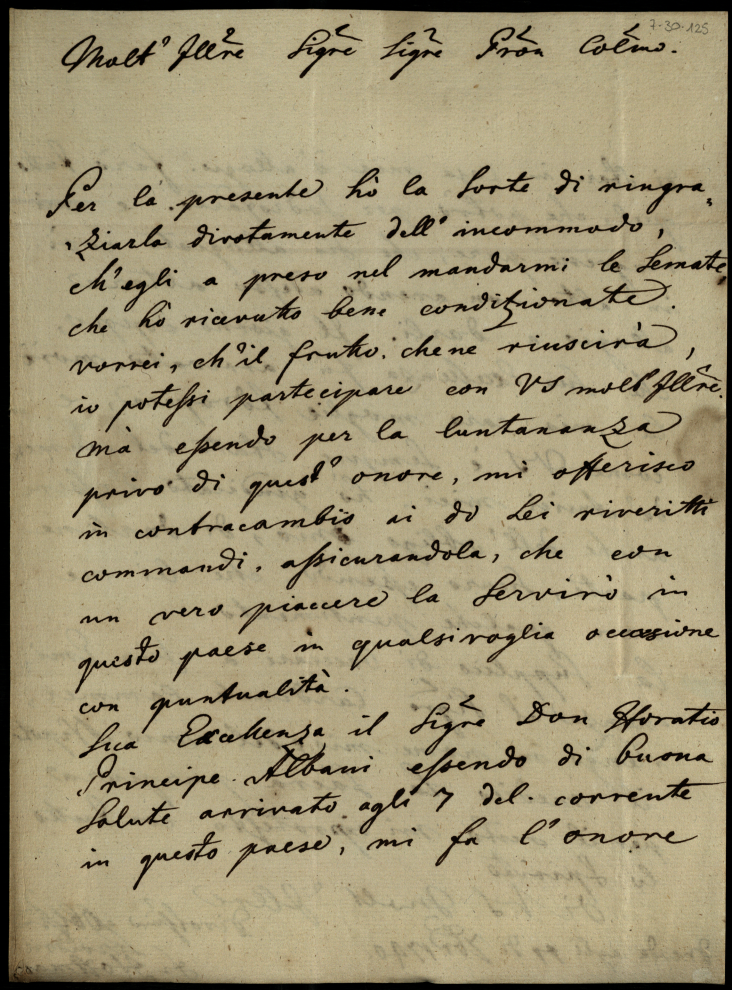 7-30-125
Molt' Illre Sigre Sigre Pron Colmo.
Per la presente hò la sorte di ringra-
ziarla divotamente dell' incommodo,
ch'egli a preso nel mandarmi le semate
che hò ricevutto bene condizionate.
vorrei, ch'il frutto, chene riuscirà,
io potessi partecipare con VS molt' Illre.
mà essendo per la luntananza
privo di quest' onore, mi offerisco
in contracambio ai do Lei riveritti
commandi, assicurandola, che con
un vero piacere la servirò in
questo paese in qualsivoglia occasione
con puntualità.
Sua Excellenza il Sigre Don Horatio
Principe Albani essendo di buona
salute arrivato agli 7 del corrente
in questo paese, mi fa l'onore